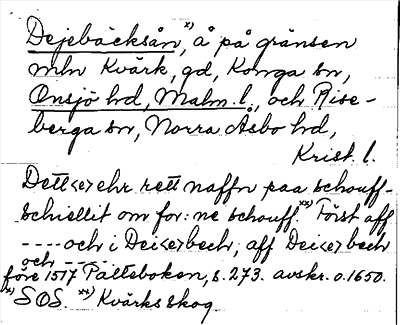 Dejebäcksån,ˣ⁾ å på gränsen
mln Kvärk, gd, Konga sn,
Onsjö hd, Malm. l., och Rise-
berga sn, Norra Åsbo hd,
Krist. l.
Dett<e> ehr rett naffn paa schouff-
schiellit om for: ne schouff.ˣˣ⁾ Först aff
---- och i Dei<e>bech, aff Dei<e>bech
och -----
före 1517 Pätteboken, s. 273. avskr. o. 1650.
ˣ⁾ SOS. ˣˣ⁾ Kvärks skog